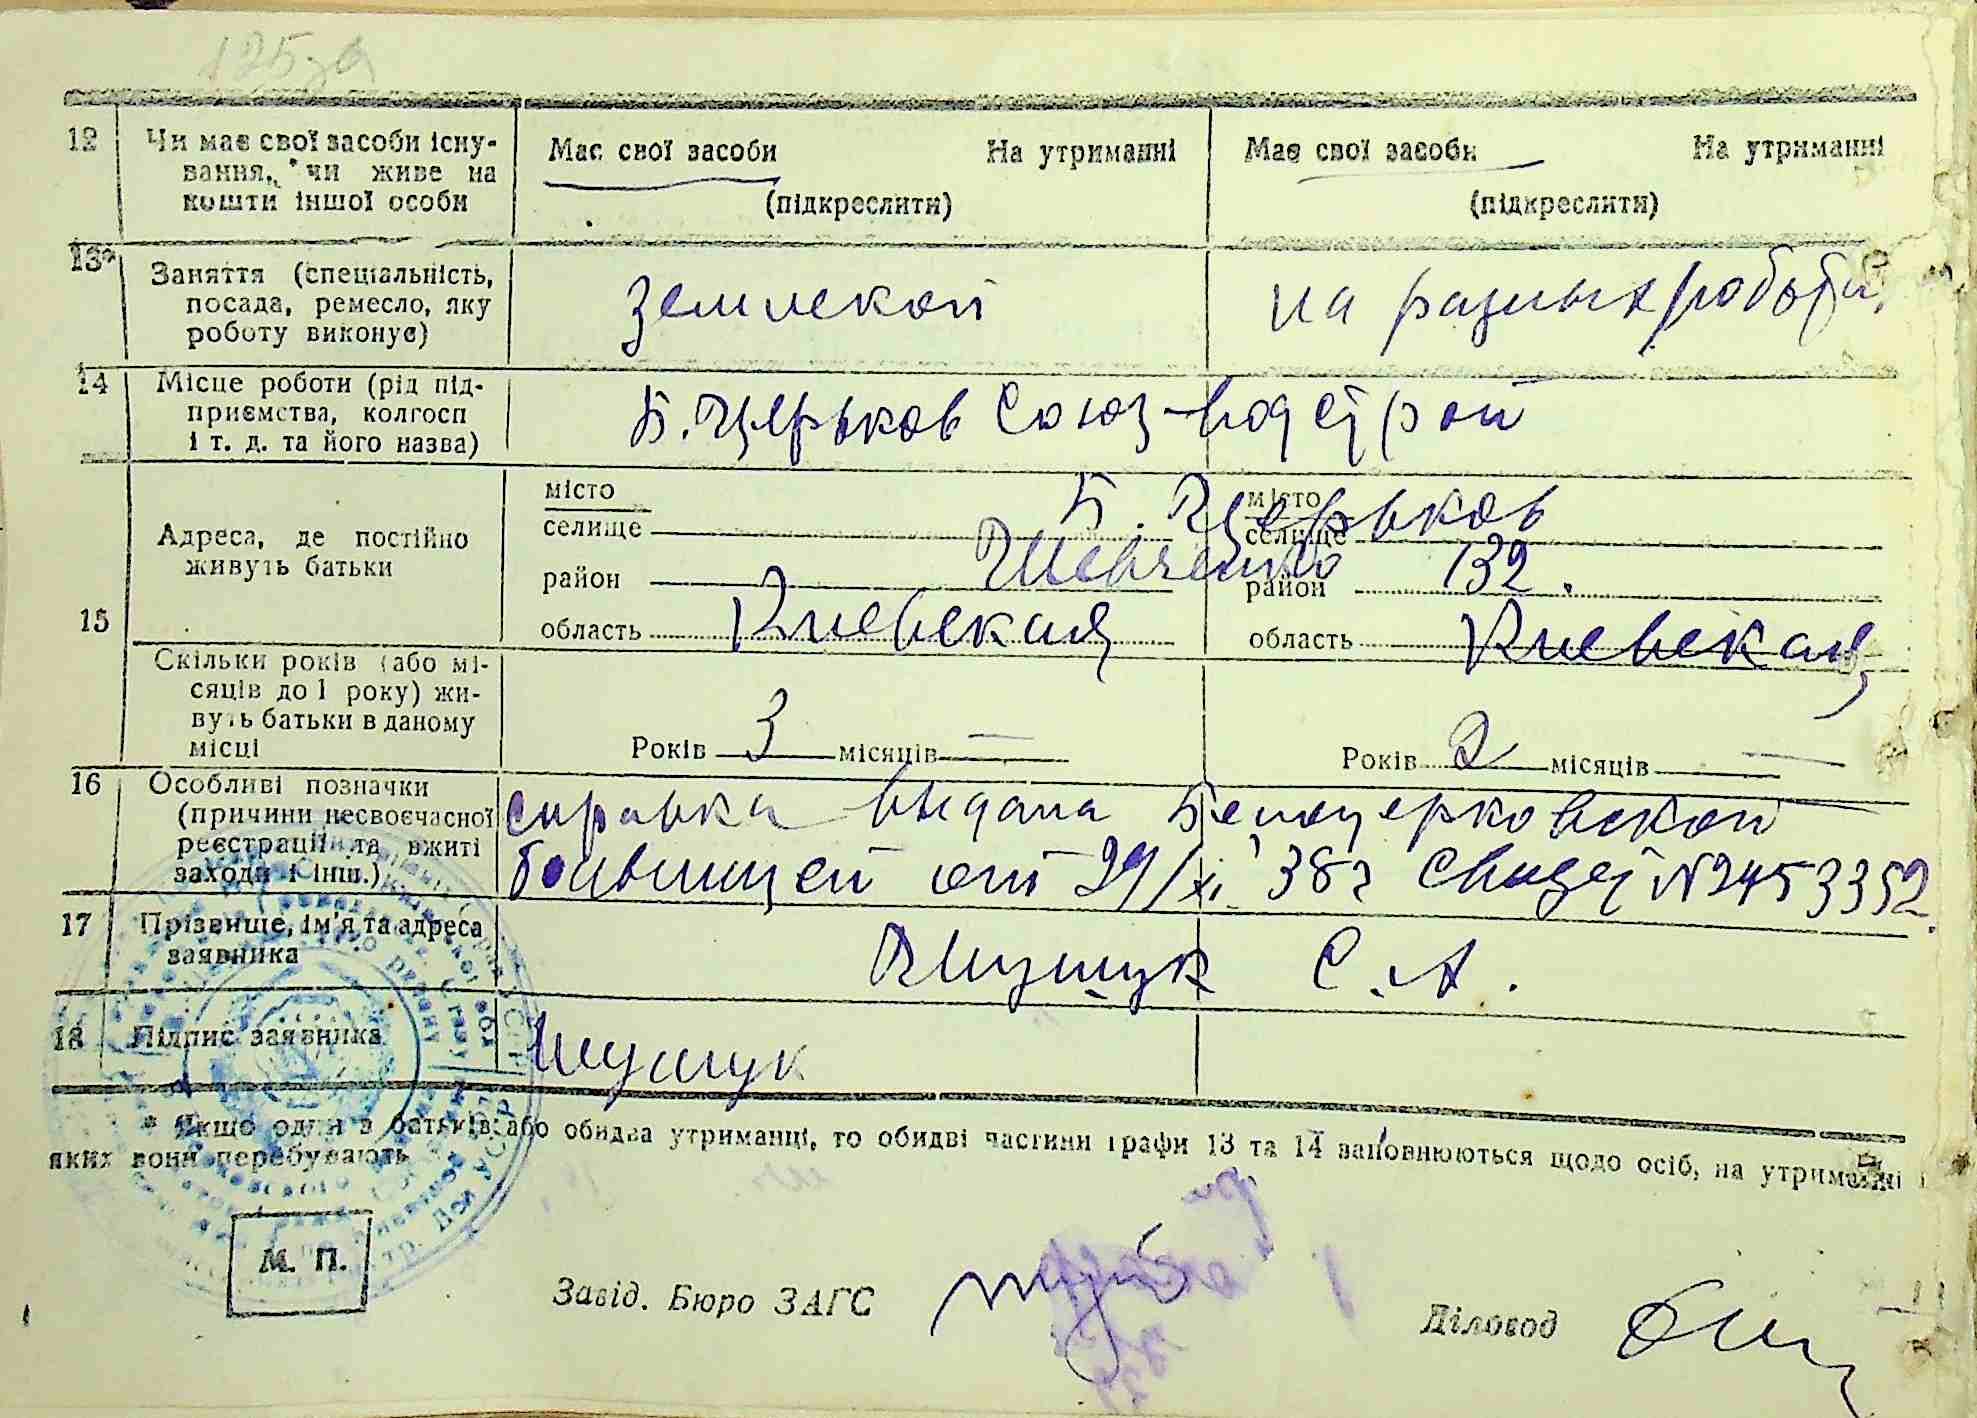 125
12 Чи має свої засоби існу-
вання, чи живе на
кошти іншої особи
Має свої засоби На утриманні
(підкреслити)
Має свої засоби На утриманні
(підкреслити)
13*
Заняття (спеціальність,
посада, ремесло, яку
роботу виконує)
землекоп
на разных работа
14 Місце роботи (рід під-
приємства, колгосп
і т. д. та його назва)
Б. Церьков Союз-водстрой
15
Адреса, де постійно
живуть батьки
місто
селище
район
область
місто
селище
район
область
Б. Церьков
Шевченко 132.
Киевская
Киевская
Скільки років (або мі-
сяців до 1 року) жи-
вуть батьки в даному
місці
Років 3 місяців —
Років 2 місяців —
16 Особливі позначки
(причини несвоєчасної
реєстрації та вжиті
заходи і інш.)
справка выдана Белоцерковской
больницей от 29/XI 38г Свидет №2453352.
17 Прізвище, ім'я та адреса
заявника
С. А.
18 Підпис заявника
* Якщо один з батьків або обидва утриманці, то обидві частини графи 13 та 14 заповнюються щодо осіб, на утриманні
яких вони перебувають
М. П.
Завід. Бюро ЗАГС
Діловод